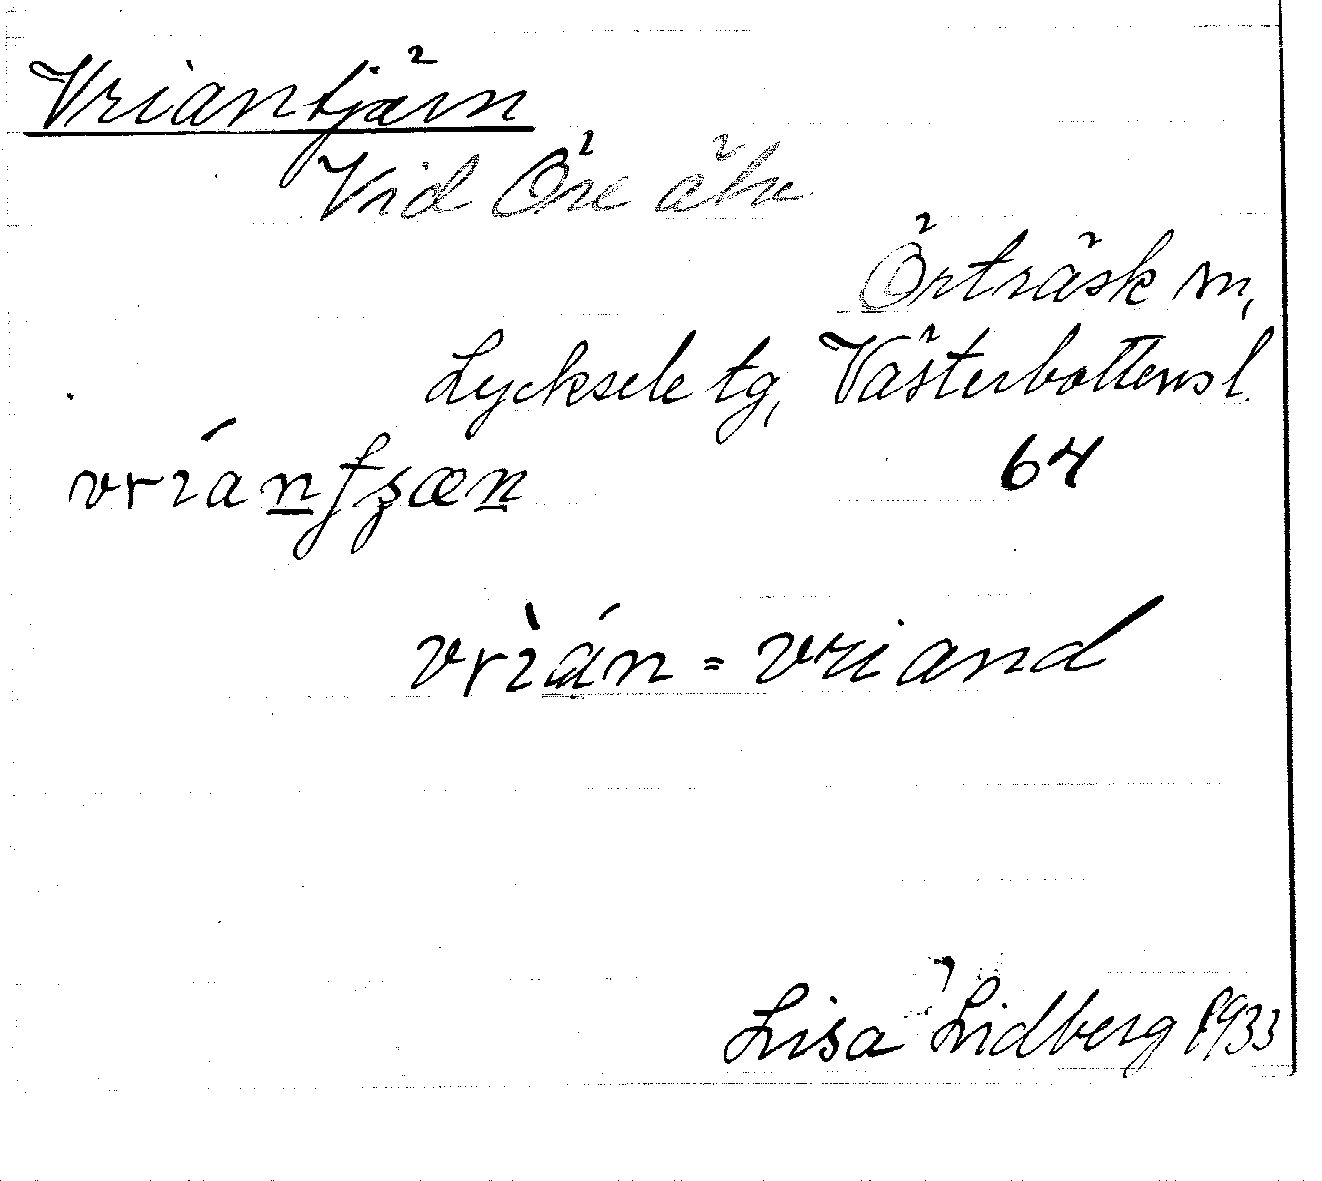 Vriantjärn
Vid Öre älv
Örträsk sn,
Lycksele tg, Västerbottens l.
64
vrìán = vriand
Lisa Lidberg 1933